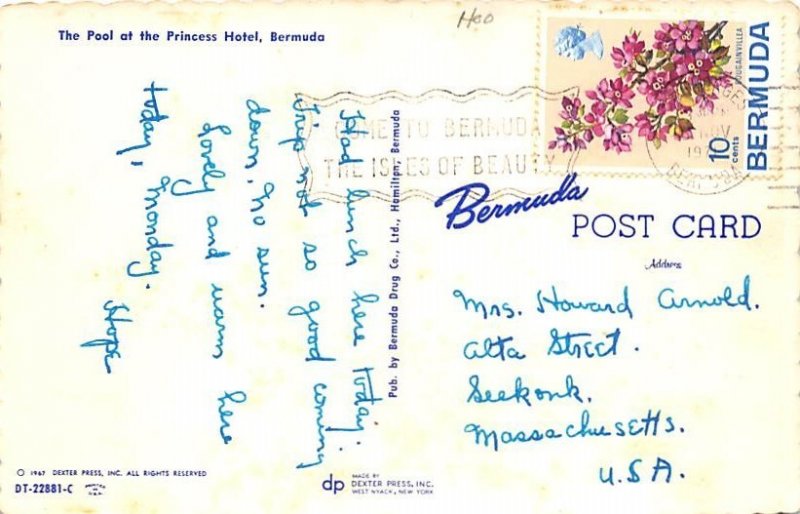 The Pool at the Princess Hotel, Bermuda
Hoo
Had lunch here today.
Trip not so good coming
down. No sun.
Lovely and warm here
today, Monday.
Hope
Pub. by Bermuda Drug Co., Ltd., Hamilton, Bermuda
COME TO BERMUDA
THE ISLES OF BEAUTY
BOUGAINVILLEA
10 cents
BERMUDA
NOV
197
Bermuda
POST CARD
Address
Mrs. Howard Arnold.
Alta Street.
Seekonk.
Massachusetts.
U.S.A.
© 1967 DEXTER PRESS, INC. ALL RIGHTS RESERVED
DT-22881-C
dp
MADE BY
DEXTER PRESS, INC.
WEST NYACK, NEW YORK